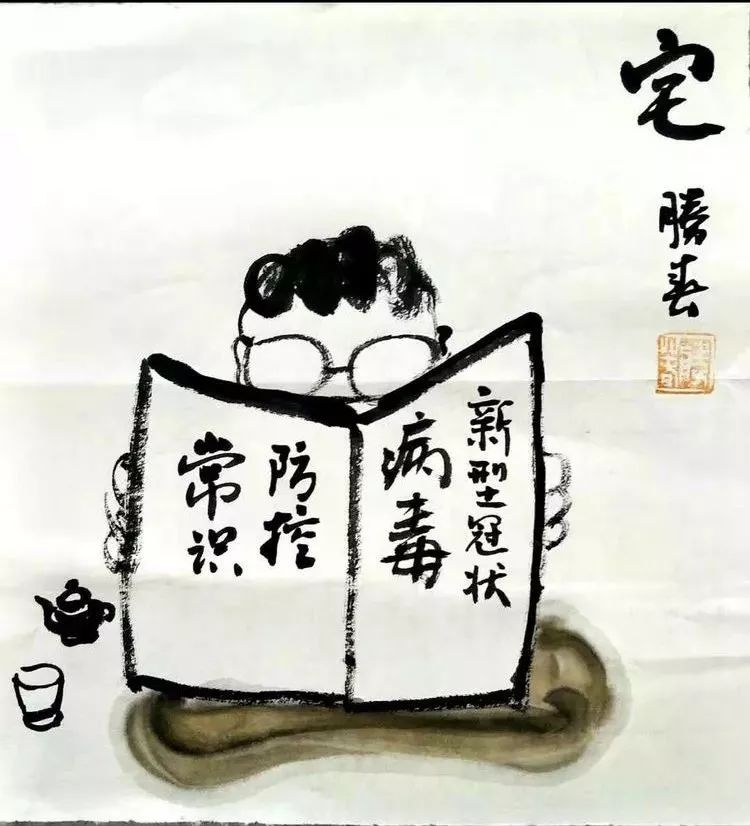 宅
勝春
新型冠状
病毒
防控
常识